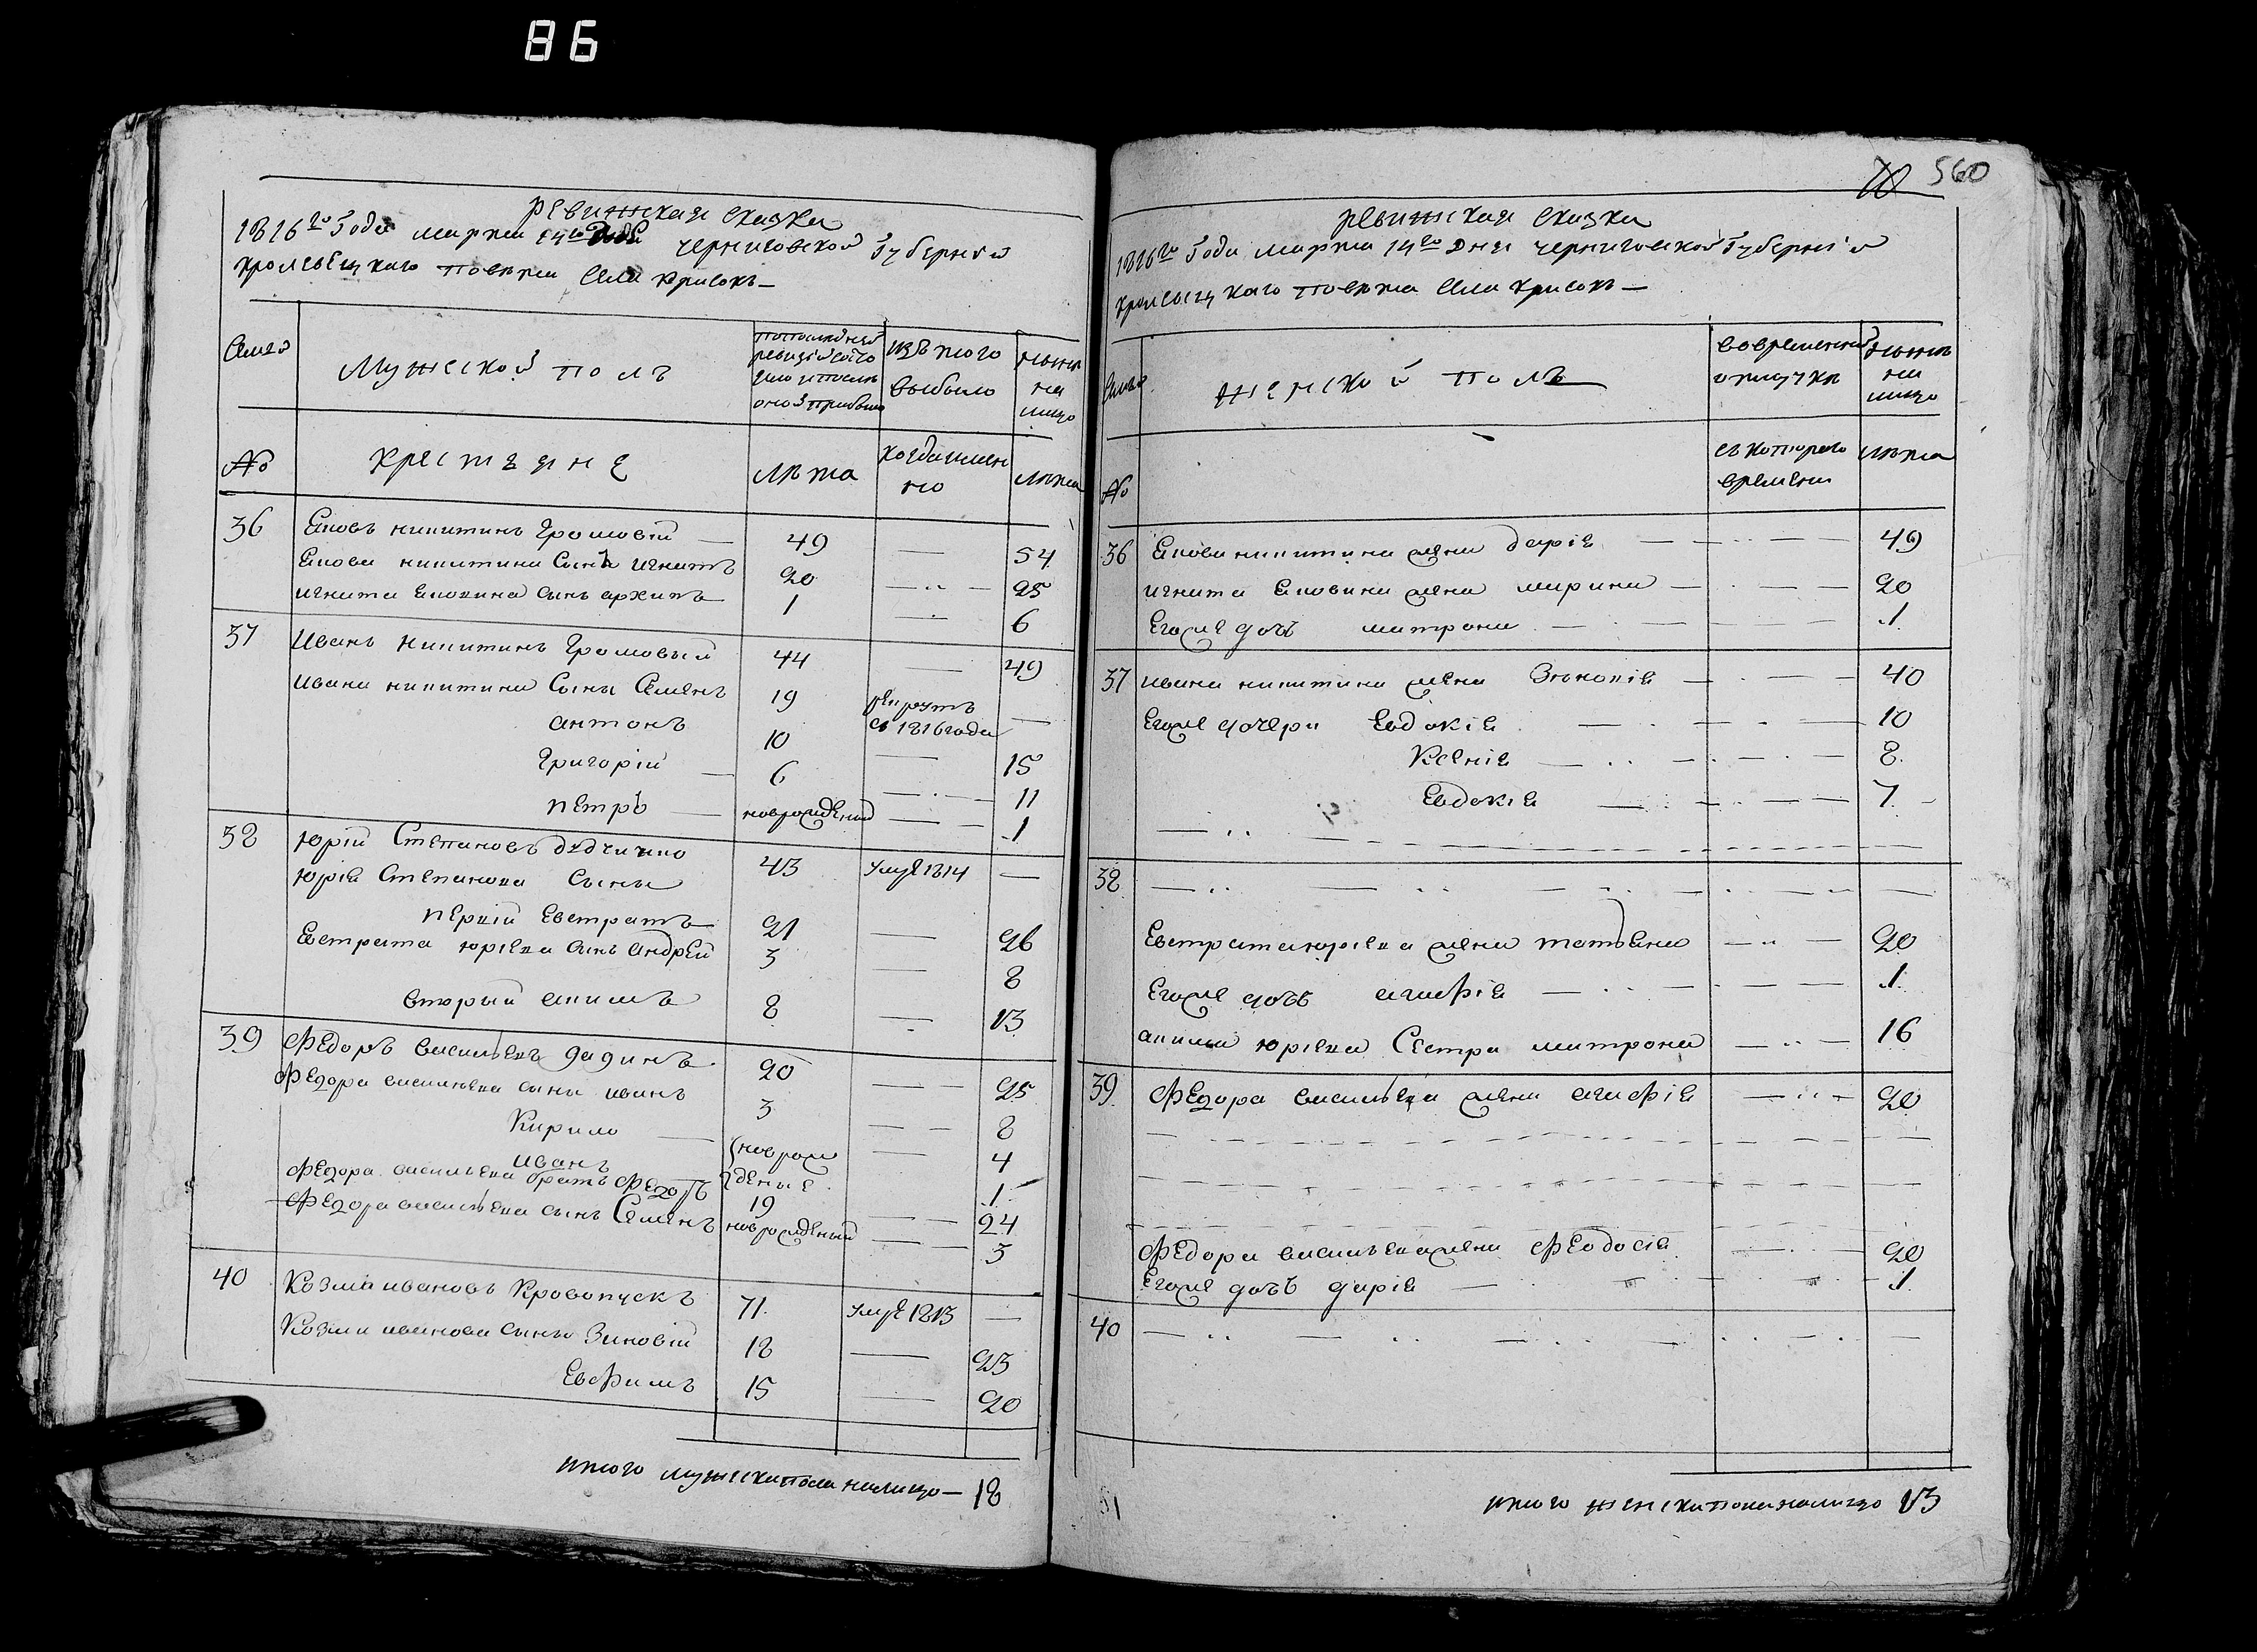 86
560
Ревижская сказка
1816го Года марта 14го дня Черниговской Губернии
Кролевецкаго повета села Крисокъ —
Семьи
Мужеской полъ
по последней ревизии состояло и после оной прибыло
изъ того выбыло
ныне на лицо
№
Крестьяне
лета
когда именно
лета
36 Яковъ Никитинъ Громовій — 49 — 54
Якова Никитина Сынъ Игнатъ 20 — 25
Игната Яковина сынъ архипъ 1 — 6
37 Иванъ Никитинъ Громовый 44 — 49
Ивана Никитина Сыны Семенъ 19 рекрутъ съ 1816 года —
антонъ 10 — 15
Григорій — 6 — 11
петръ — новорожденый — 1
38 Юрій Степановъ дудчично 43 умре 1814 —
Юрія Степанова Сыны
первій Евстратъ 21 — 26
Евстрата юріева сынъ андрей 3 — 8
вторый акимъ 8 — 13
39 Федоръ васильевъ дадинъ 20 — 25
Федора васильева сыны иванъ 3 — 8
Кирило — новорож — 4
иванъ деные 1
Федора васильева братъ Федоръ 19 — 24
Федора васильева сынъ Семенъ новорожденый — 3
40 Козма ивановъ Кровопускъ 71 умре 1813 —
Козми иванова сыны Зиновій 18 — 23
Евфимъ 15 — 20
итого мужеска пола налицо — 18
Ревижская сказка
1816го Года марта 14го дня Черниговской Губерніи
Кролевецкаго повета села Крисокъ —
Семьи
Женской полъ
во временной отлучке
ныне на лицо
№
съ которого времени
лета
36 Якова никитина жена дарія — 49
игната Яковина жена марина — 20
Егоже дочь матрона — 1
37 ивана никитина жена Зѣновія — 40
Егоже дочери Евдокія — 10
Ксенія — 8
Евдокія — 7
38 —
Евстрата юріева жена татьяна — 20
Егоже дочь агафія — 1
акима юріева Сестра матрона — 16
39 Федора васильева жена агафія — 20
Федора васильева жена Феодосія — 20
Егоже дочь дарія — 1
40 —
итого женска пола налицо 13